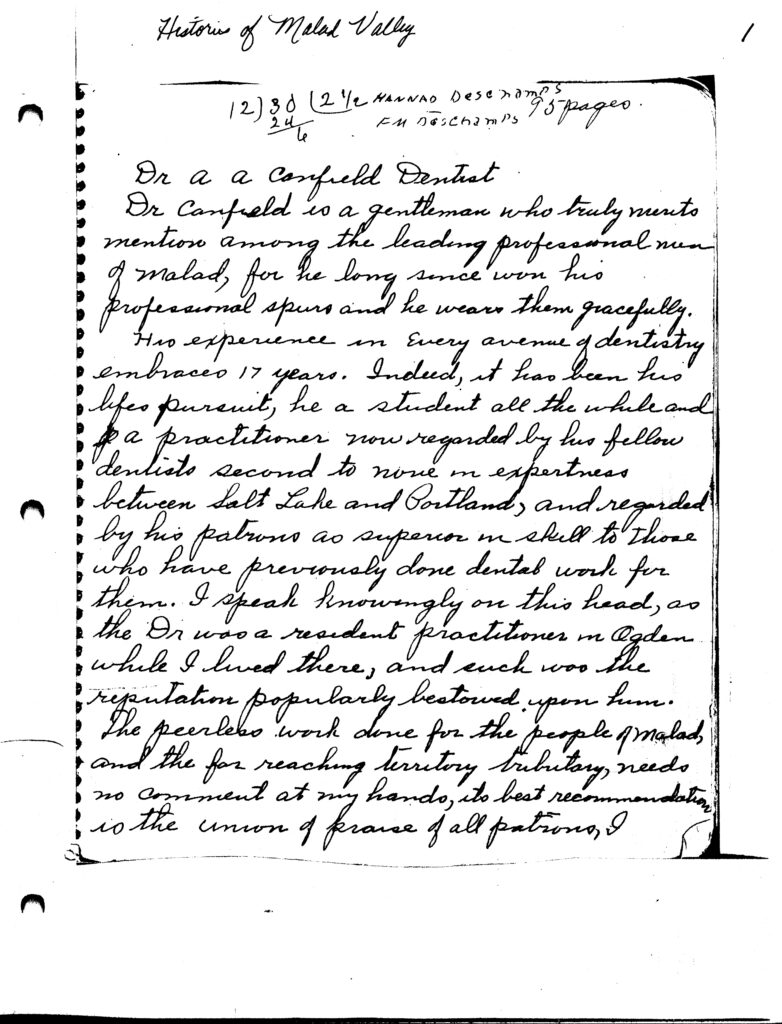 Histories of Malad Valley
1
12)30(2 1/2 HANNAD DeschamPS 95 pages.
24 FM Deschamps
6
Dr A A Canfield Dentist
Dr Canfield is a gentleman who truly merits
mention among the leading professional men
of Malad, for he long since won his
professional spurs and he wears them gracefully.
His experience in Every avenue of dentistry
embraces 17 years. Indeed, it has been his
lifes pursuit, he a student all the while and
a practitioner now regarded by his fellow
dentists second to none in expertness
between Salt Lake and Portland, and regarded
by his patrons as superior in skill to those
who have previously done dental work for
them. I speak knowingly on this head, as
the Dr was a resident practitioner in Ogden
while I lived there, and such was the
reputation popularly bestowed upon him.
The peerless work done for the people of Malad,
and the far reaching territory tributary, needs
no comment at my hands, its best recommendation
is the union of praise of all patrons, I